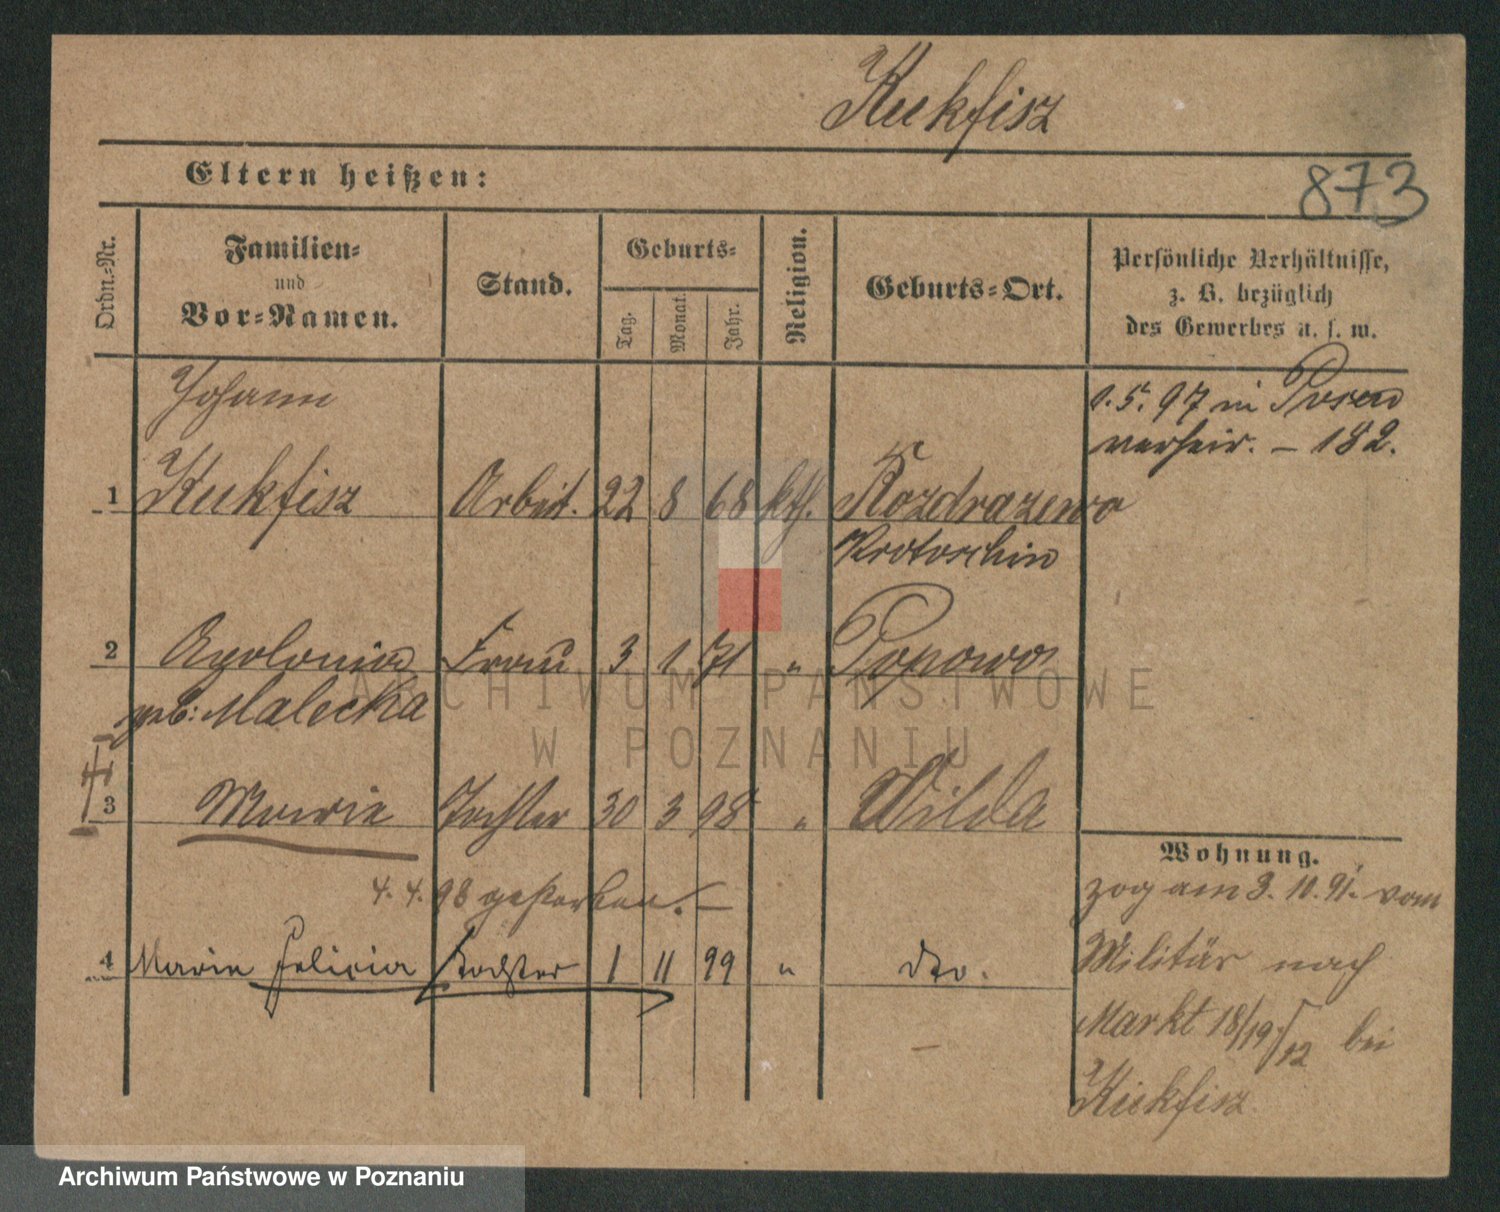 Kukfisz
Eltern heißen:
873
Ordn.-Nr.
Familien-
und
Vor-Namen.
Stand.
Geburts-
Tag.
Monat.
Jahr.
Religion.
Geburts-Ort.
Persönliche Verhältnisse,
z. B. bezüglich
des Gewerbes u. s. w.
Johann
5. 97 in Posen
verheir. – 182.
1 Kukfisz Arbeit. 22 8 68 kth. Rozdrazewo
Krotoschin
2 Apolonia Frau 3 1 71 " Popowo
geb: Malecka
ARCHIWUM PAŃSTWOWE
W POZNANIU
3 Marie Tochter 30 3 98 " Wilda
Wohnung.
4. 4. 98 gestorben. –
zog am 3. 10. 91. vom
4 Marie Felicia Tochter 1 11 99 " dto.
Militär nach
Markt 18/19/12 bei
Kukfisz
Archiwum Państwowe w Poznaniu